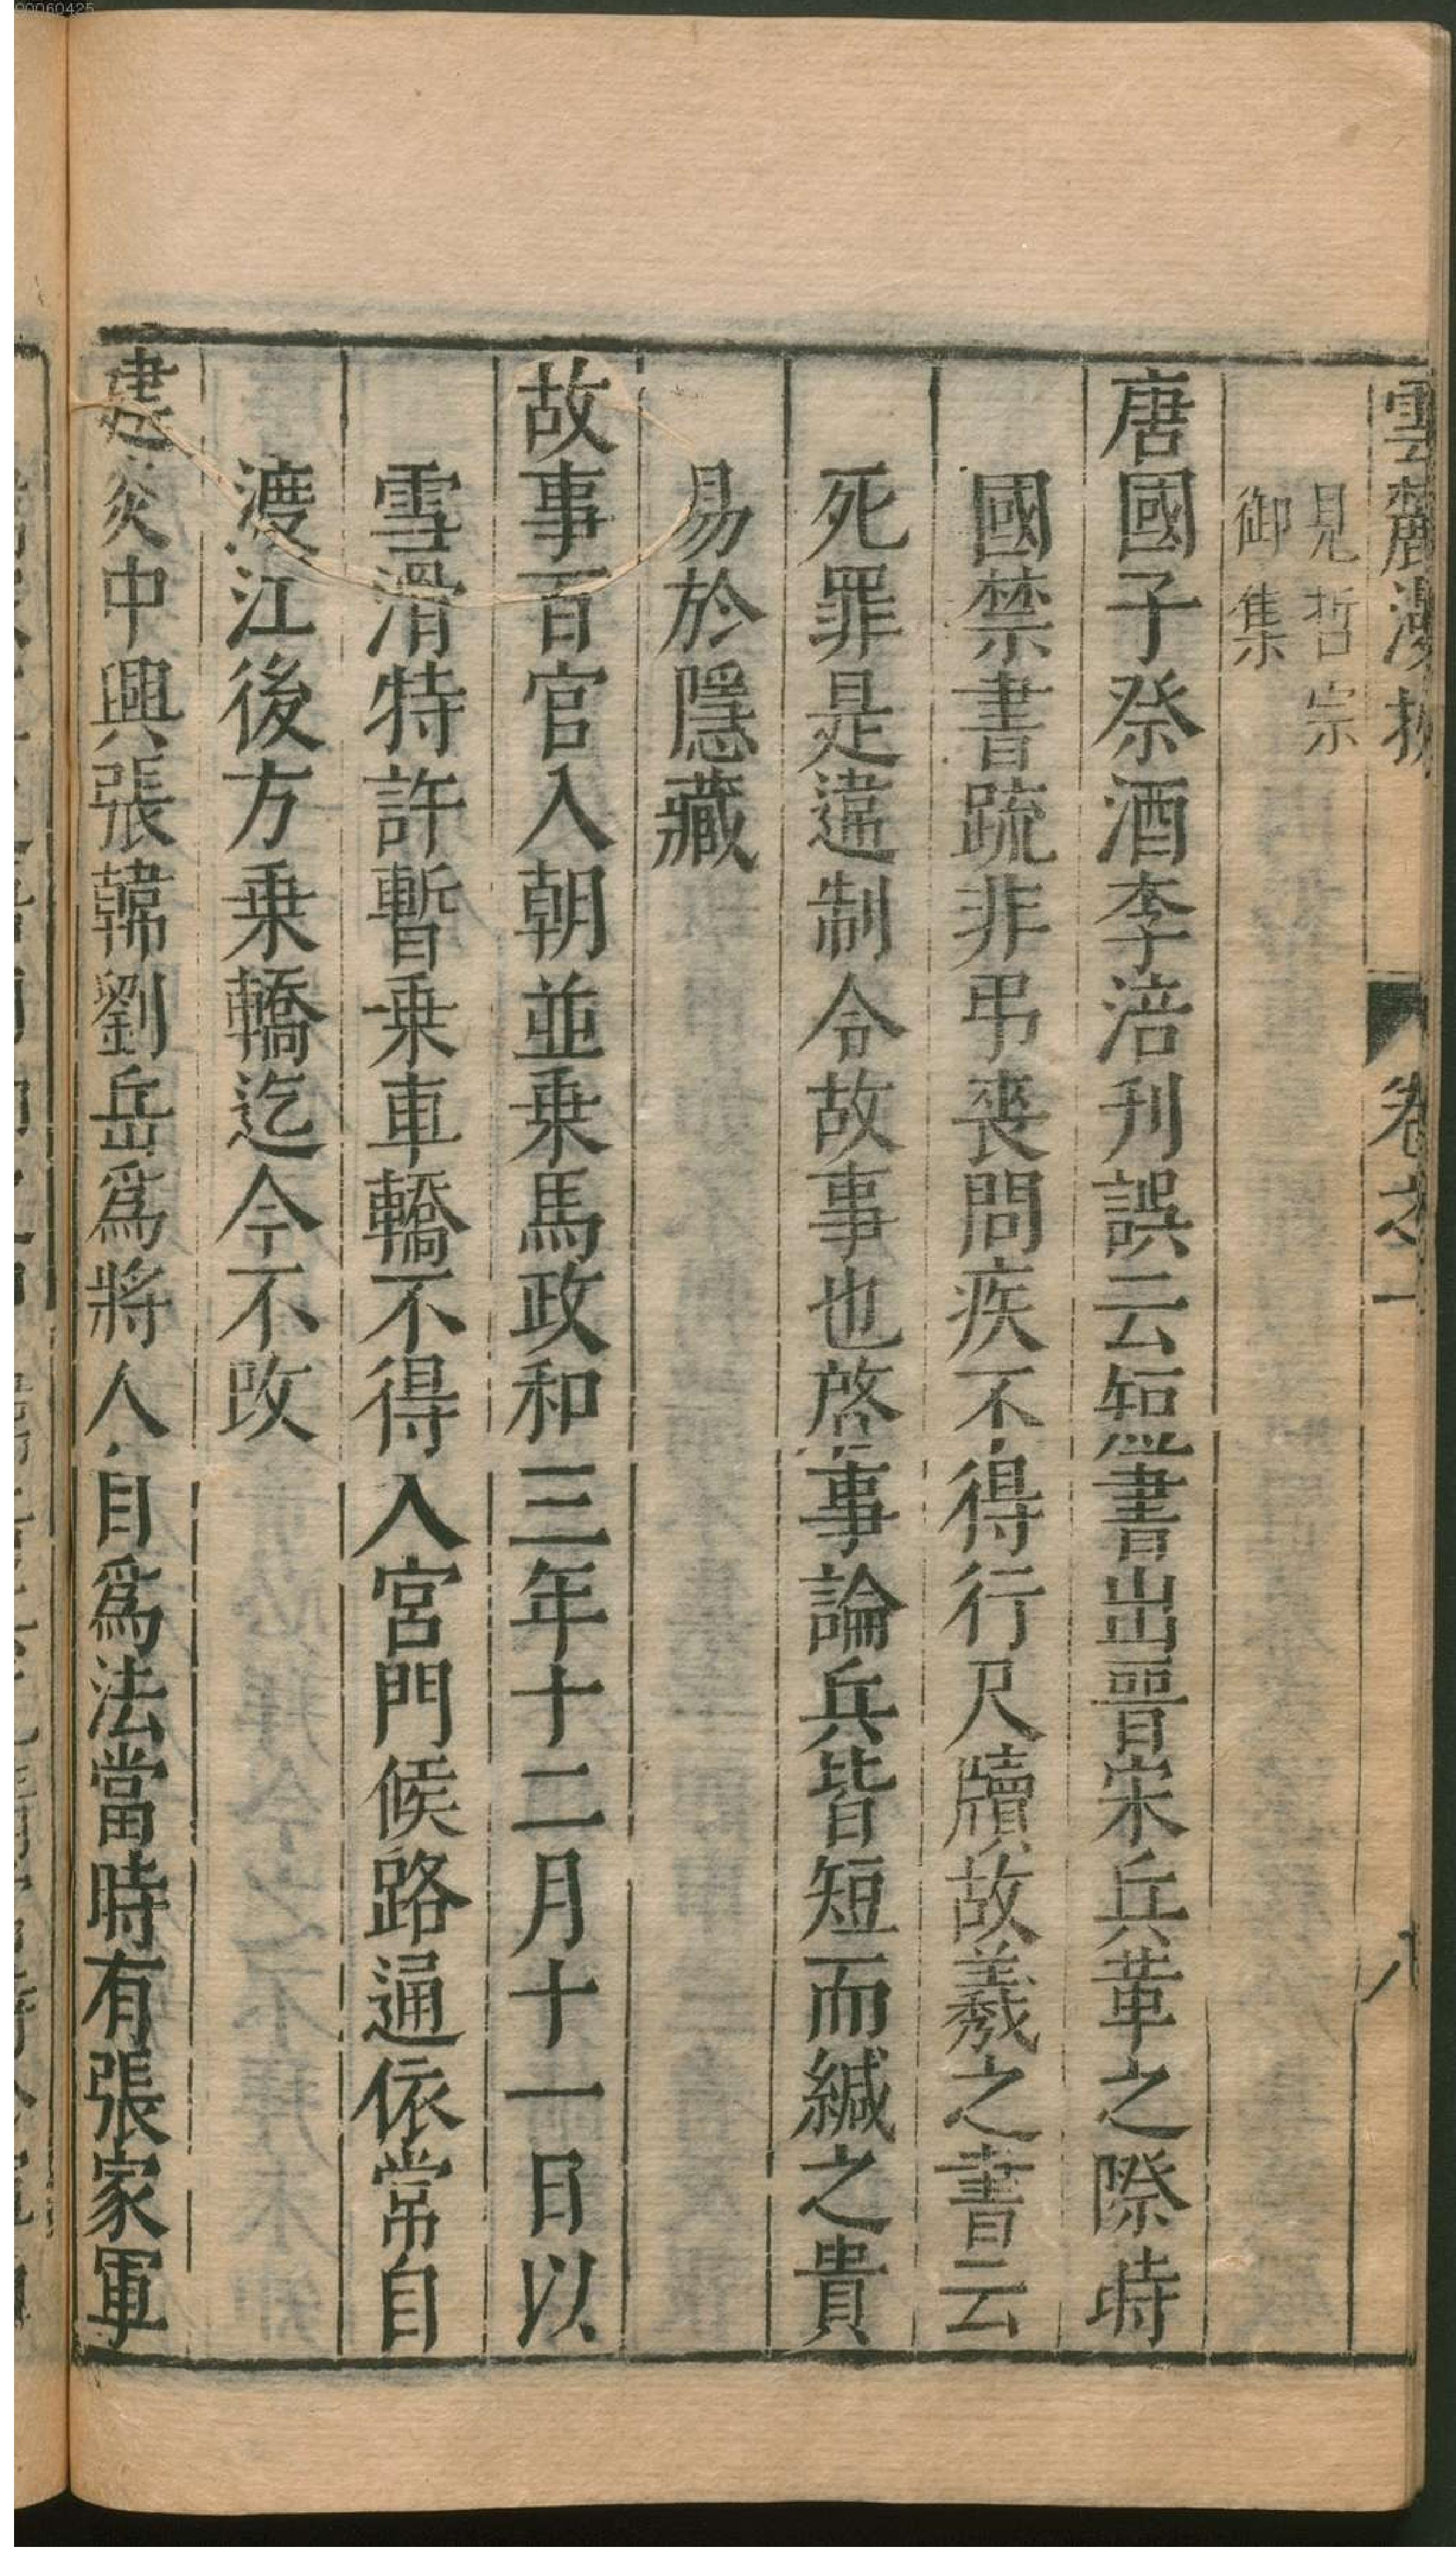 雲麓漫抄　卷之一　八
見哲宗
御集
唐國子祭酒李涪刋誤云短啓書出晉宋兵革之際時
國禁書疏非弔喪問疾不得行尺牘故羲之書云
死罪是違制令故事也啓事論兵皆短而緘之貴
易於隱藏
故事百官入朝並乗馬政和三年十二月十一日以
雪滑特許暫乗車轎不得入宮門候路通依常自
渡江後方乗轎迄今不改
建炎中興張韓劉岳爲將人自爲法當時有張家軍
80060425